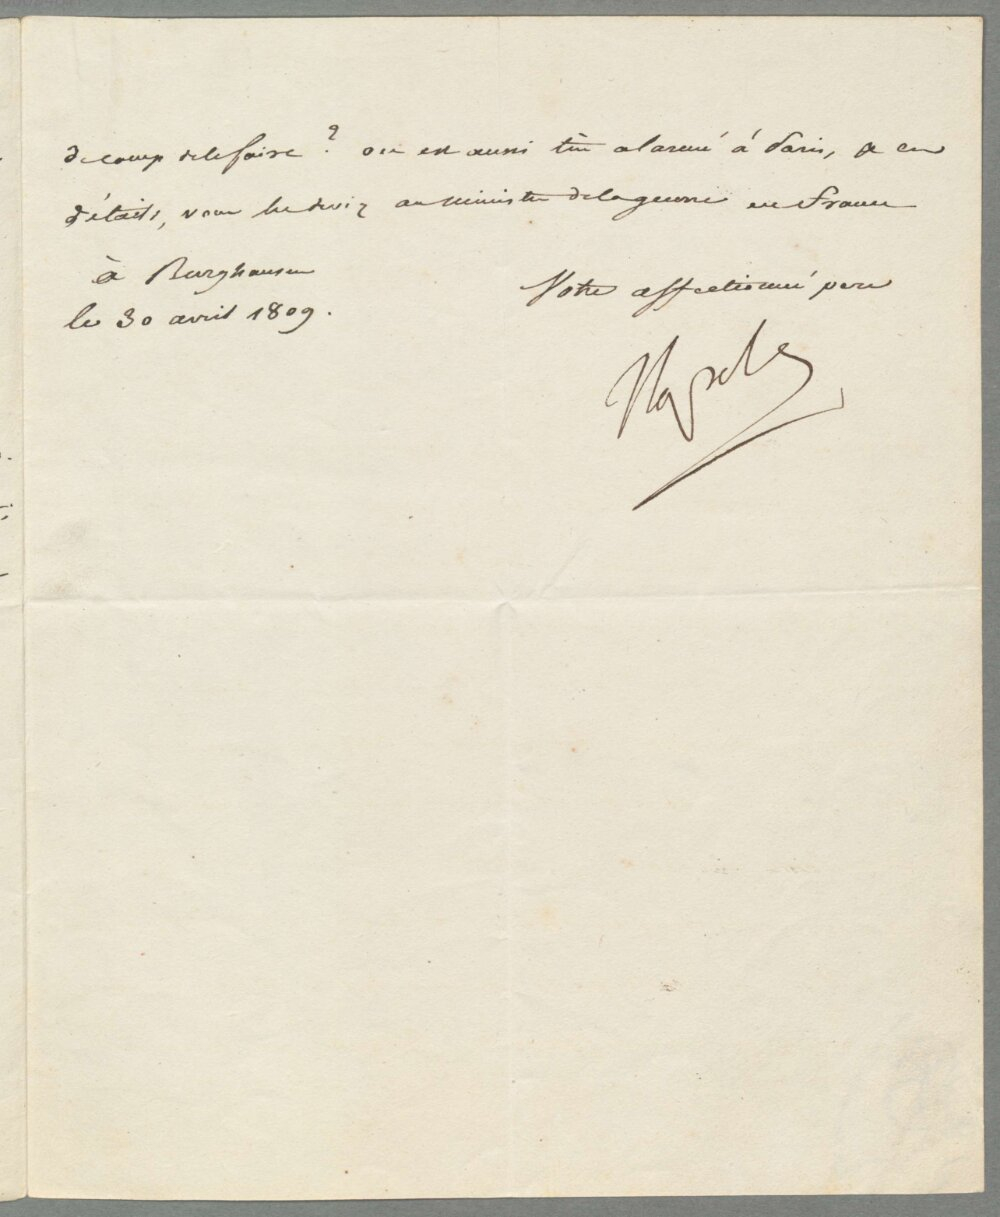 de camp de le faire ? on est aussi très alarmé à Paris, & ces
détails, vous les deviez au ministre de la guerre en France
à Burghausen
le 30 avril 1809.
Votre affectionné père
Napole